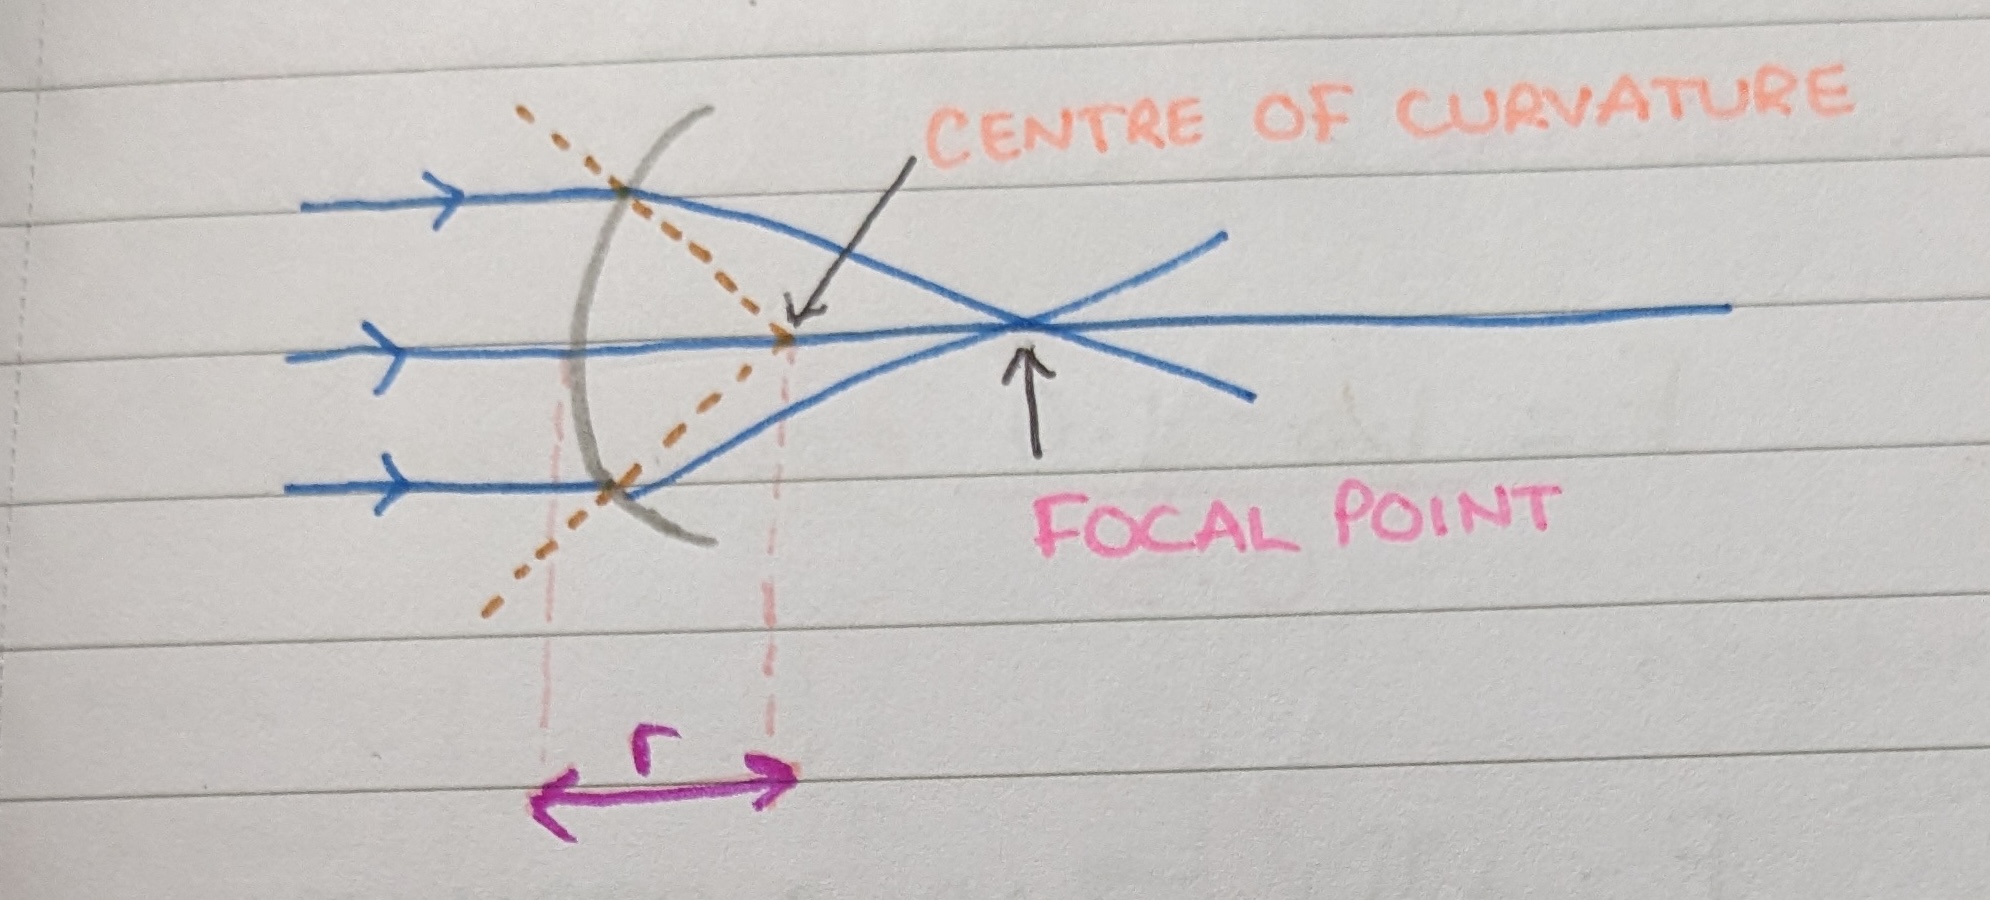 CENTRE OF CURVATURE
FOCAL POINT
r